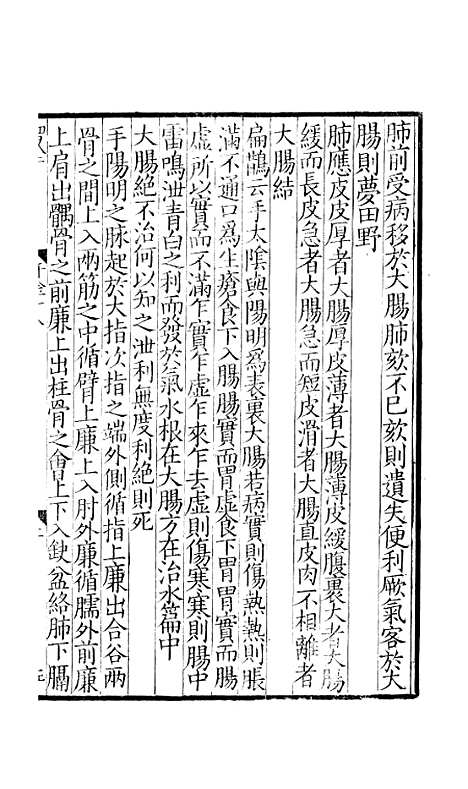 肺前受病移於大腸肺欬不已欬則遺失便利厥氣客於大
腸則夢田野
肺應皮皮厚者大腸厚皮薄者大腸薄皮緩腹裹大者大腸
緩而長皮急者大腸急而短皮滑者大腸直皮肉不相離者
大腸結
扁鵲云手太陰與陽明爲表裏大腸若病實則傷熱熱則脹
滿不通口爲生瘡食下入腸腸實而胃虛食下胃胃實而腸
虛所以實而不滿乍實乍虛乍來乍去虛則傷寒寒則腸中
雷鳴泄青白之利而發於氣水根在大腸方在治水篇中
大腸絕不治何以知之泄利無度利絕則死
手陽明之脉起於大指次指之端外側循指上廉出合谷兩
骨之間上入兩筋之中循臂上廉上入肘外廉循臑外前廉
上肩出髃骨之前廉上出柱骨之會上下入鈌盆絡肺下膈